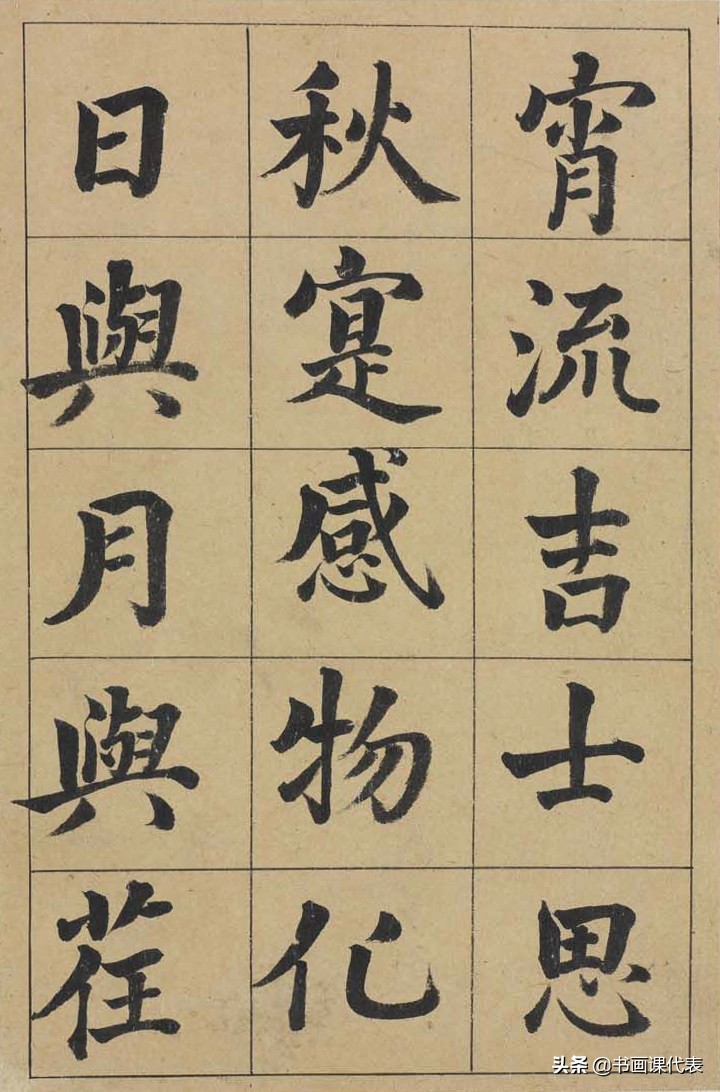 宵流吉士思
秋寔感物化
日與月與荏
头条 @书画课代表